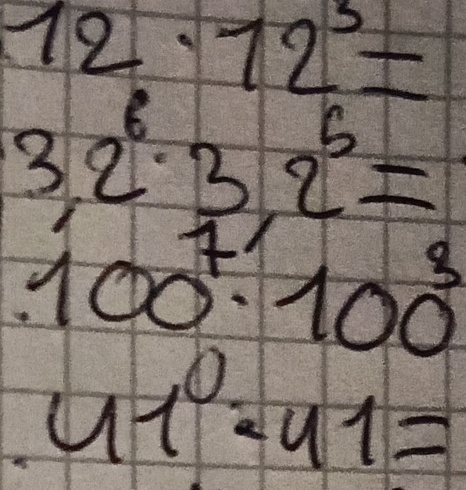 12 · 12³ =
3,2⁶ · 3,2⁵ =
100⁷ · 100³
41⁰ · 41 =